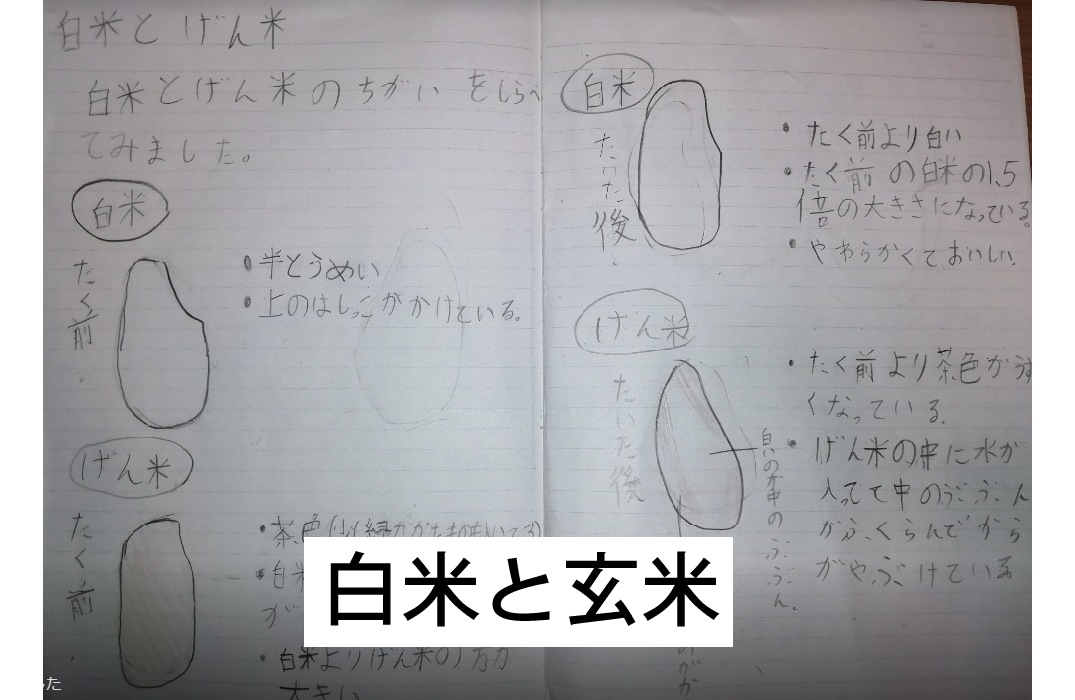 白米とげん米
白米とげん米のちがいをしらべ
てみました。
白米
たく前
半とうめい
上のはしっこがかけている。
げん米
たく前
茶色
白米
が
白米よりげん米の方が
大きい
白米
たいた後
たく前より白い
たく前の白米の1.5
倍の大きさになっている。
やわらかくておいしい。
げん米
たいた後
白いの中のぶぶん。
たく前より茶色がうす
くなっている。
げん米の中に水が
入って中のぶぶん
がふくらんでから
がやぶけている
白米と玄米
した